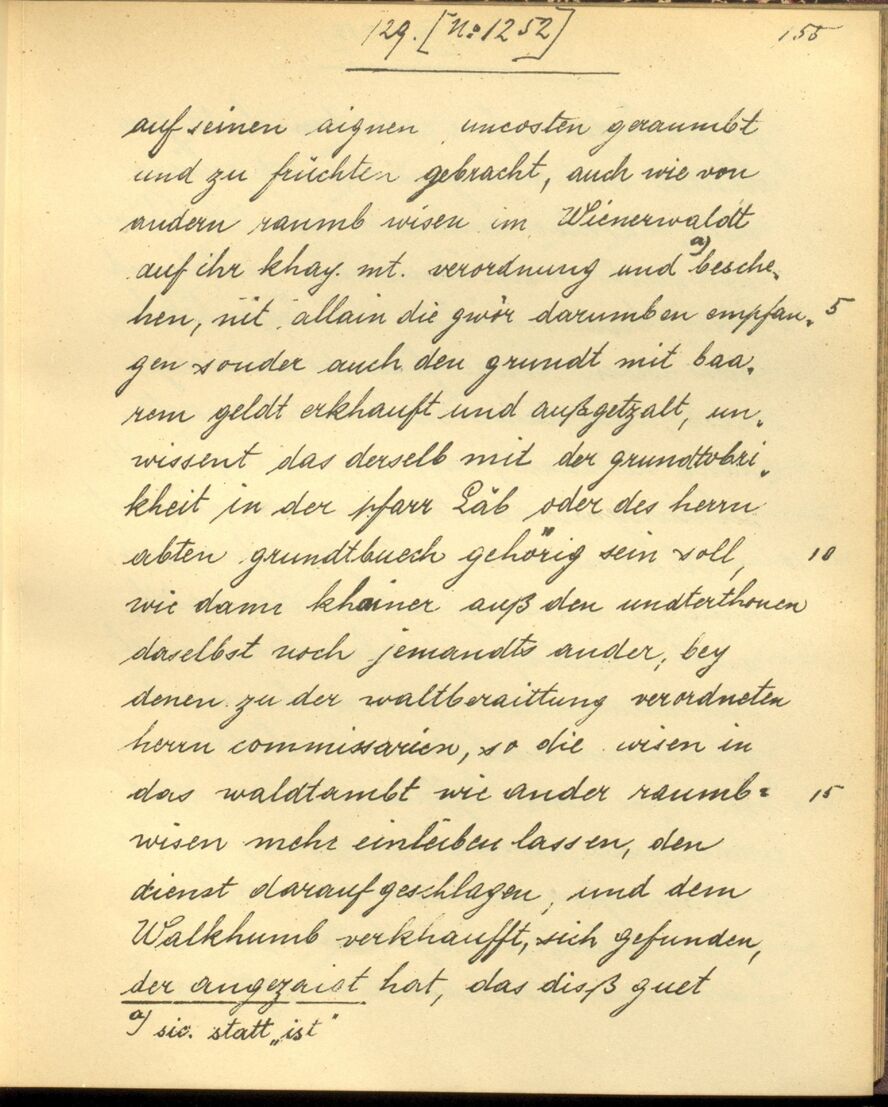 129. [No 1252]
155
auf seinen aignen uncosten geraumbt
und zu früchten gebracht, auch wie von
andern raumb wisen im Wienerwaldt
auf ihr khay. mt. verordnung und a) besche„
hen, nit allain die gwör darumben empfan„ 5
gen sonder auch den grundt mit baa„
rem geldt erkhauft und außgetzalt, un„
wissent das derselb mit der grundtobri„
kheit in der pfarr Läb oder des herrn
abten grundtbuech gehörig sein soll, 10
wie dann khainer auß den undterthonen
daselbst noch jemandts ander, bey
denen zu der waltberaittung verordneten
herrn commissarien, so die wisen in
das waldtambt wie ander raumb= 15
wisen mehr einleiben lassen, den
dienst darauf geschlagen, und dem
Walkhumb verkhaufft, sich gefunden,
der angezaigt hat, das disß guet
a) sic. statt „ist"